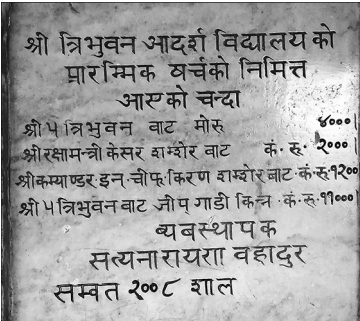 श्री त्रिभुवन आदर्श विद्यालय को
प्रारम्मिक खर्चको निमित्त
आएको चन्दा
श्री ५ त्रिभुवन बाट मोरू ४०००
श्रीरक्षामन्त्री केसर शम्शेर बाट कं. रू. २०००
श्रीकम्याण्डर.इन.चीफ.किरण शम्शेर बाट.कं.रू.१२००
श्री ५ त्रिभुवन बाट जीप् गाडी किन्न.कं.रू.११०००
व्यबस्थापक
सत्यनारायरण वहादुर
सम्वत २००८ शाल